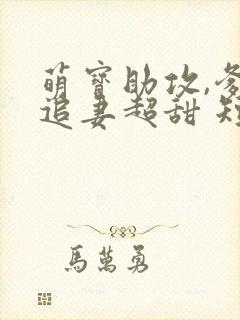 萌寶助攻,爹
追妻超甜 短
馬萬勇